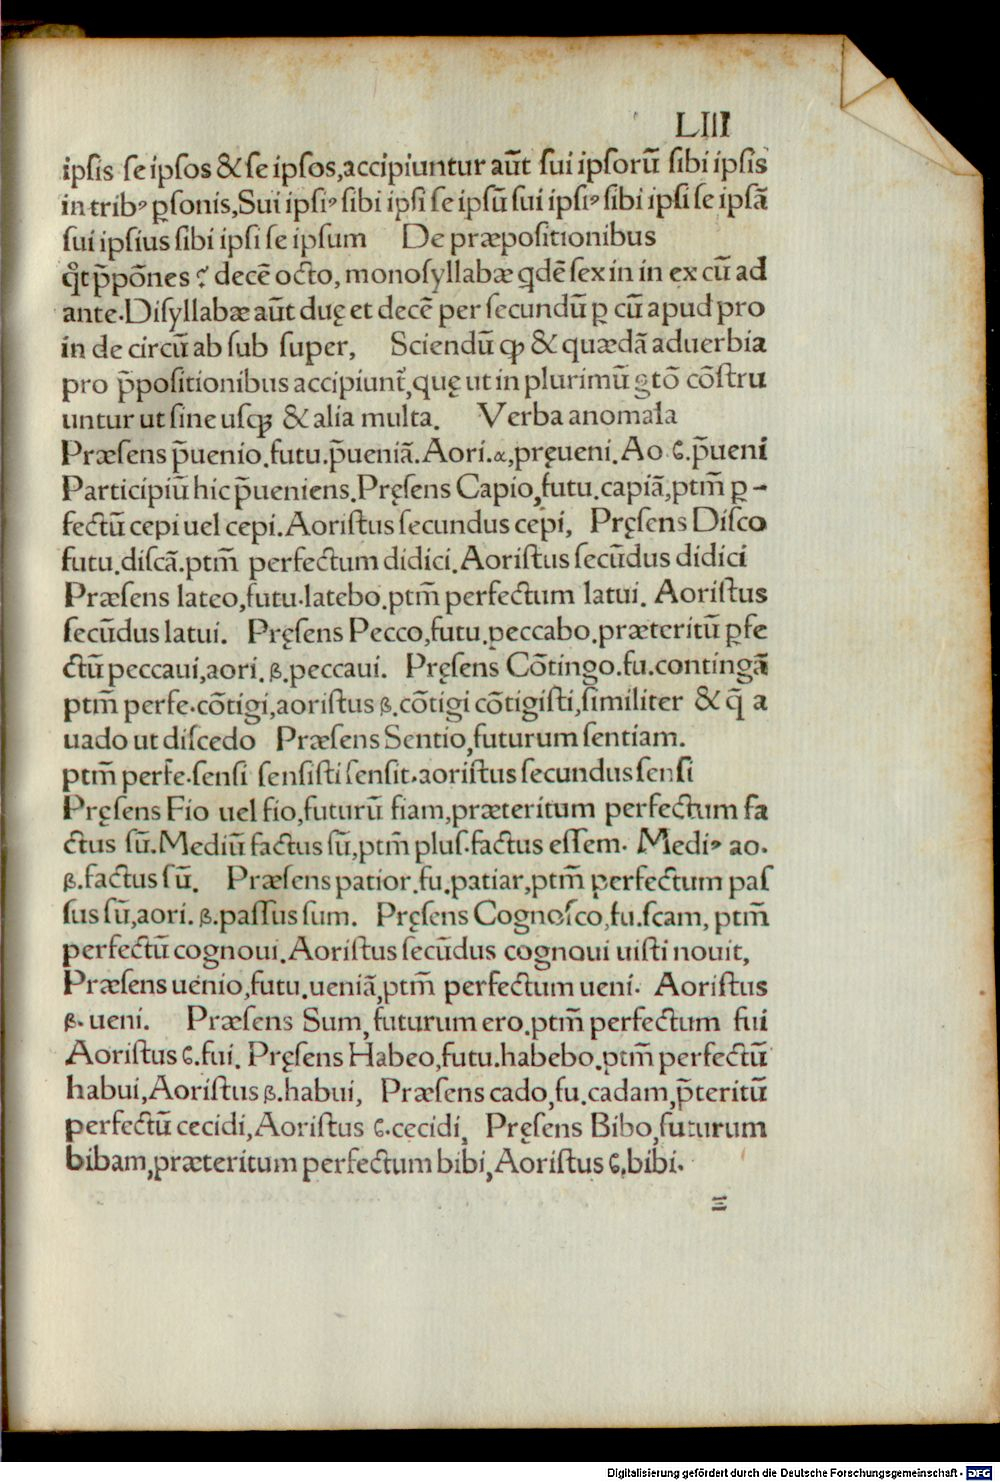 LIII
ipſis ſe ipſos & ſe ipſos,accipiuntur aūt ſui ipſorū ſibi ipſis
in tribꝰ ꝑſonis,Sui ipſiꝰ ſibi ipſi ſe ipſū ſui ipſiꝰ ſibi ipſi ſe ipſā
ſui ipſius ſibi ipſi ſe ipſum De præpoſitionibus
p̄põnes decē octo, monoſyllabæ qdē ſex in in ex cū ad
ante.Diſyllabæ aūt duę et decē per ſecundū ꝑ cū apud pro
in de circū ab ſub ſuper, Sciendū ꝙ & quædā aduerbia
pro p̄poſitionibus accipiunt᷑,quę ut in plurimū gtō cōſtru
untur ut ſine uſqꝫ & alia multa. Verba anomala
Præſens p̄uenio.futu.p̄ueniā.Aori.α,pręueni.Ao ϛ.p̄ueni
Participiū hic p̄ueniens.Pręſens Capio,futu.capiā,ptm̄ ꝑ-
fectū cepi uel cepi.Aoriſtus ſecundus cepi, Pręſens Diſco
futu.diſcā.ptm̄ perfectum didici.Aoriſtus ſecūdus didici
Præſens lateo,futu.latebo.ptm̄ perfectum latui. Aoriſtus
ſecūdus latui. Pręſens Pecco,futu.peccabo.præteritū ꝑfe
ctū peccaui,aori.β.peccaui. Pręſens Cōtingo.fu.contingā
ptm̄ perfe.cōtigi,aoriſtus β.cōtigi cōtigiſti,ſimiliter & q̄ a
uado ut diſcedo Præſens Sentio,futurum ſentiam.
ptm̄ perfe.ſenſi ſenſiſti ſenſit.aoriſtus ſecundus ſenſi
Pręſens Fio uel fio,futurū fiam,præteritum perfectum fa
ctus ſū.Mediū factus ſū,ptm̄ pluſ.factus eſſem. Mediꝰ ao.
β.factus ſū. Præſens patior.fu.patiar,ptm̄ perfectum paſ
ſus ſū,aori.β.paſſus ſum. Pręſens Cognoſco,fu.ſcam, ptm̄
perfectū cognoui.Aoriſtus ſecūdus cognoui uiſti nouit,
Præſens uenio,futu.ueniā,ptm̄ perfectum ueni. Aoriſtus
β.ueni. Præſens Sum, futurum ero.ptm̄ perfectum fui
Aoriſtus ϛ.fui. Pręſens Habeo,futu.habebo.ptm̄ perfectū
habui,Aoriſtus β.habui, Præſens cado,fu.cadam,p̄teritū
perfectū cecidi,Aoriſtus ϛ.cecidi, Pręſens Bibo,futurum
bibam,præteritum perfectum bibi,Aoriſtus ϛ.bibi.
Ξ
Digitalisierung gefördert durch die Deutsche Forschungsgemeinschaft - DFG